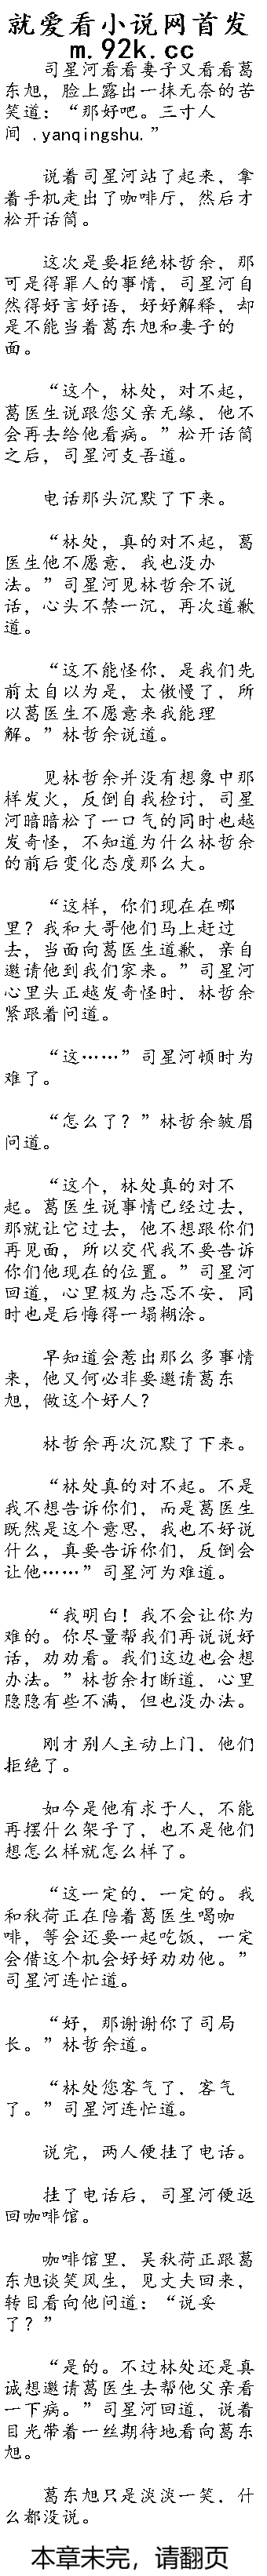 就爱看小说网首发
m.92k.cc
司星河看看妻子又看看葛
东旭，脸上露出一抹无奈的苦
笑道：“那好吧。三寸人
间 .yanqingshu.”
说着司星河站了起来，拿
着手机走出了咖啡厅，然后才
松开话筒。
这次是要拒绝林哲余，那
可是得罪人的事情，司星河自
然得好言好语，好好解释，却
是不能当着葛东旭和妻子的
面。
“这个，林处，对不起，
葛医生说跟您父亲无缘，他不
会再去给他看病。”松开话筒
之后，司星河支吾道。
电话那头沉默了下来。
“林处，真的对不起，葛
医生他不愿意，我也没办
法。”司星河见林哲余不说
话，心头不禁一沉，再次道歉
道。
“这不能怪你，是我们先
前太自以为是，太傲慢了，所
以葛医生不愿意来我能理
解。”林哲余说道。
见林哲余并没有想象中那
样发火，反倒自我检讨，司星
河暗暗松了一口气的同时也越
发奇怪，不知道为什么林哲余
的前后变化态度那么大。
“这样，你们现在在哪
里？我和大哥他们马上赶过
去，当面向葛医生道歉，亲自
邀请他到我们家来。”司星河
心里头正越发奇怪时，林哲余
紧跟着问道。
“这……”司星河顿时为
难了。
“怎么了？”林哲余皱眉
问道。
“这个，林处真的对不
起。葛医生说事情已经过去，
那就让它过去，他不想跟你们
再见面，所以交代我不要告诉
你们他现在的位置。”司星河
回道，心里极为忐忑不安，同
时也是后悔得一塌糊涂。
早知道会惹出那么多事情
来，他又何必非要邀请葛东
旭，做这个好人？
林哲余再次沉默了下来。
“林处真的对不起。不是
我不想告诉你们，而是葛医生
既然是这个意思，我也不好说
什么，真要告诉你们，反倒会
让他……”司星河为难道。
“我明白！我不会让你为
难的。你尽量帮我们再说说好
话，劝劝看。我们这边也会想
办法。”林哲余打断道，心里
隐隐有些不满，但也没办法。
刚才别人主动上门，他们
拒绝了。
如今是他有求于人，不能
再摆什么架子了，也不是他们
想怎么样就怎么样了。
“这一定的，一定的。我
和秋荷正在陪着葛医生喝咖
啡，等会还要一起吃饭，一定
会借这个机会好好劝劝他。”
司星河连忙道。
“好，那谢谢你了司局
长。”林哲余道。
“林处您客气了，客气
了。”司星河连忙道。
说完，两人便挂了电话。
挂了电话后，司星河便返
回咖啡馆。
咖啡馆里，吴秋荷正跟葛
东旭谈笑风生，见丈夫回来，
转目看向他问道：“说妥
了？”
“是的。不过林处还是真
诚想邀请葛医生去帮他父亲看
一下病。”司星河回道，说着
目光带着一丝期待地看向葛东
旭。
葛东旭只是淡淡一笑，什
么都没说。
本章未完，请翻页